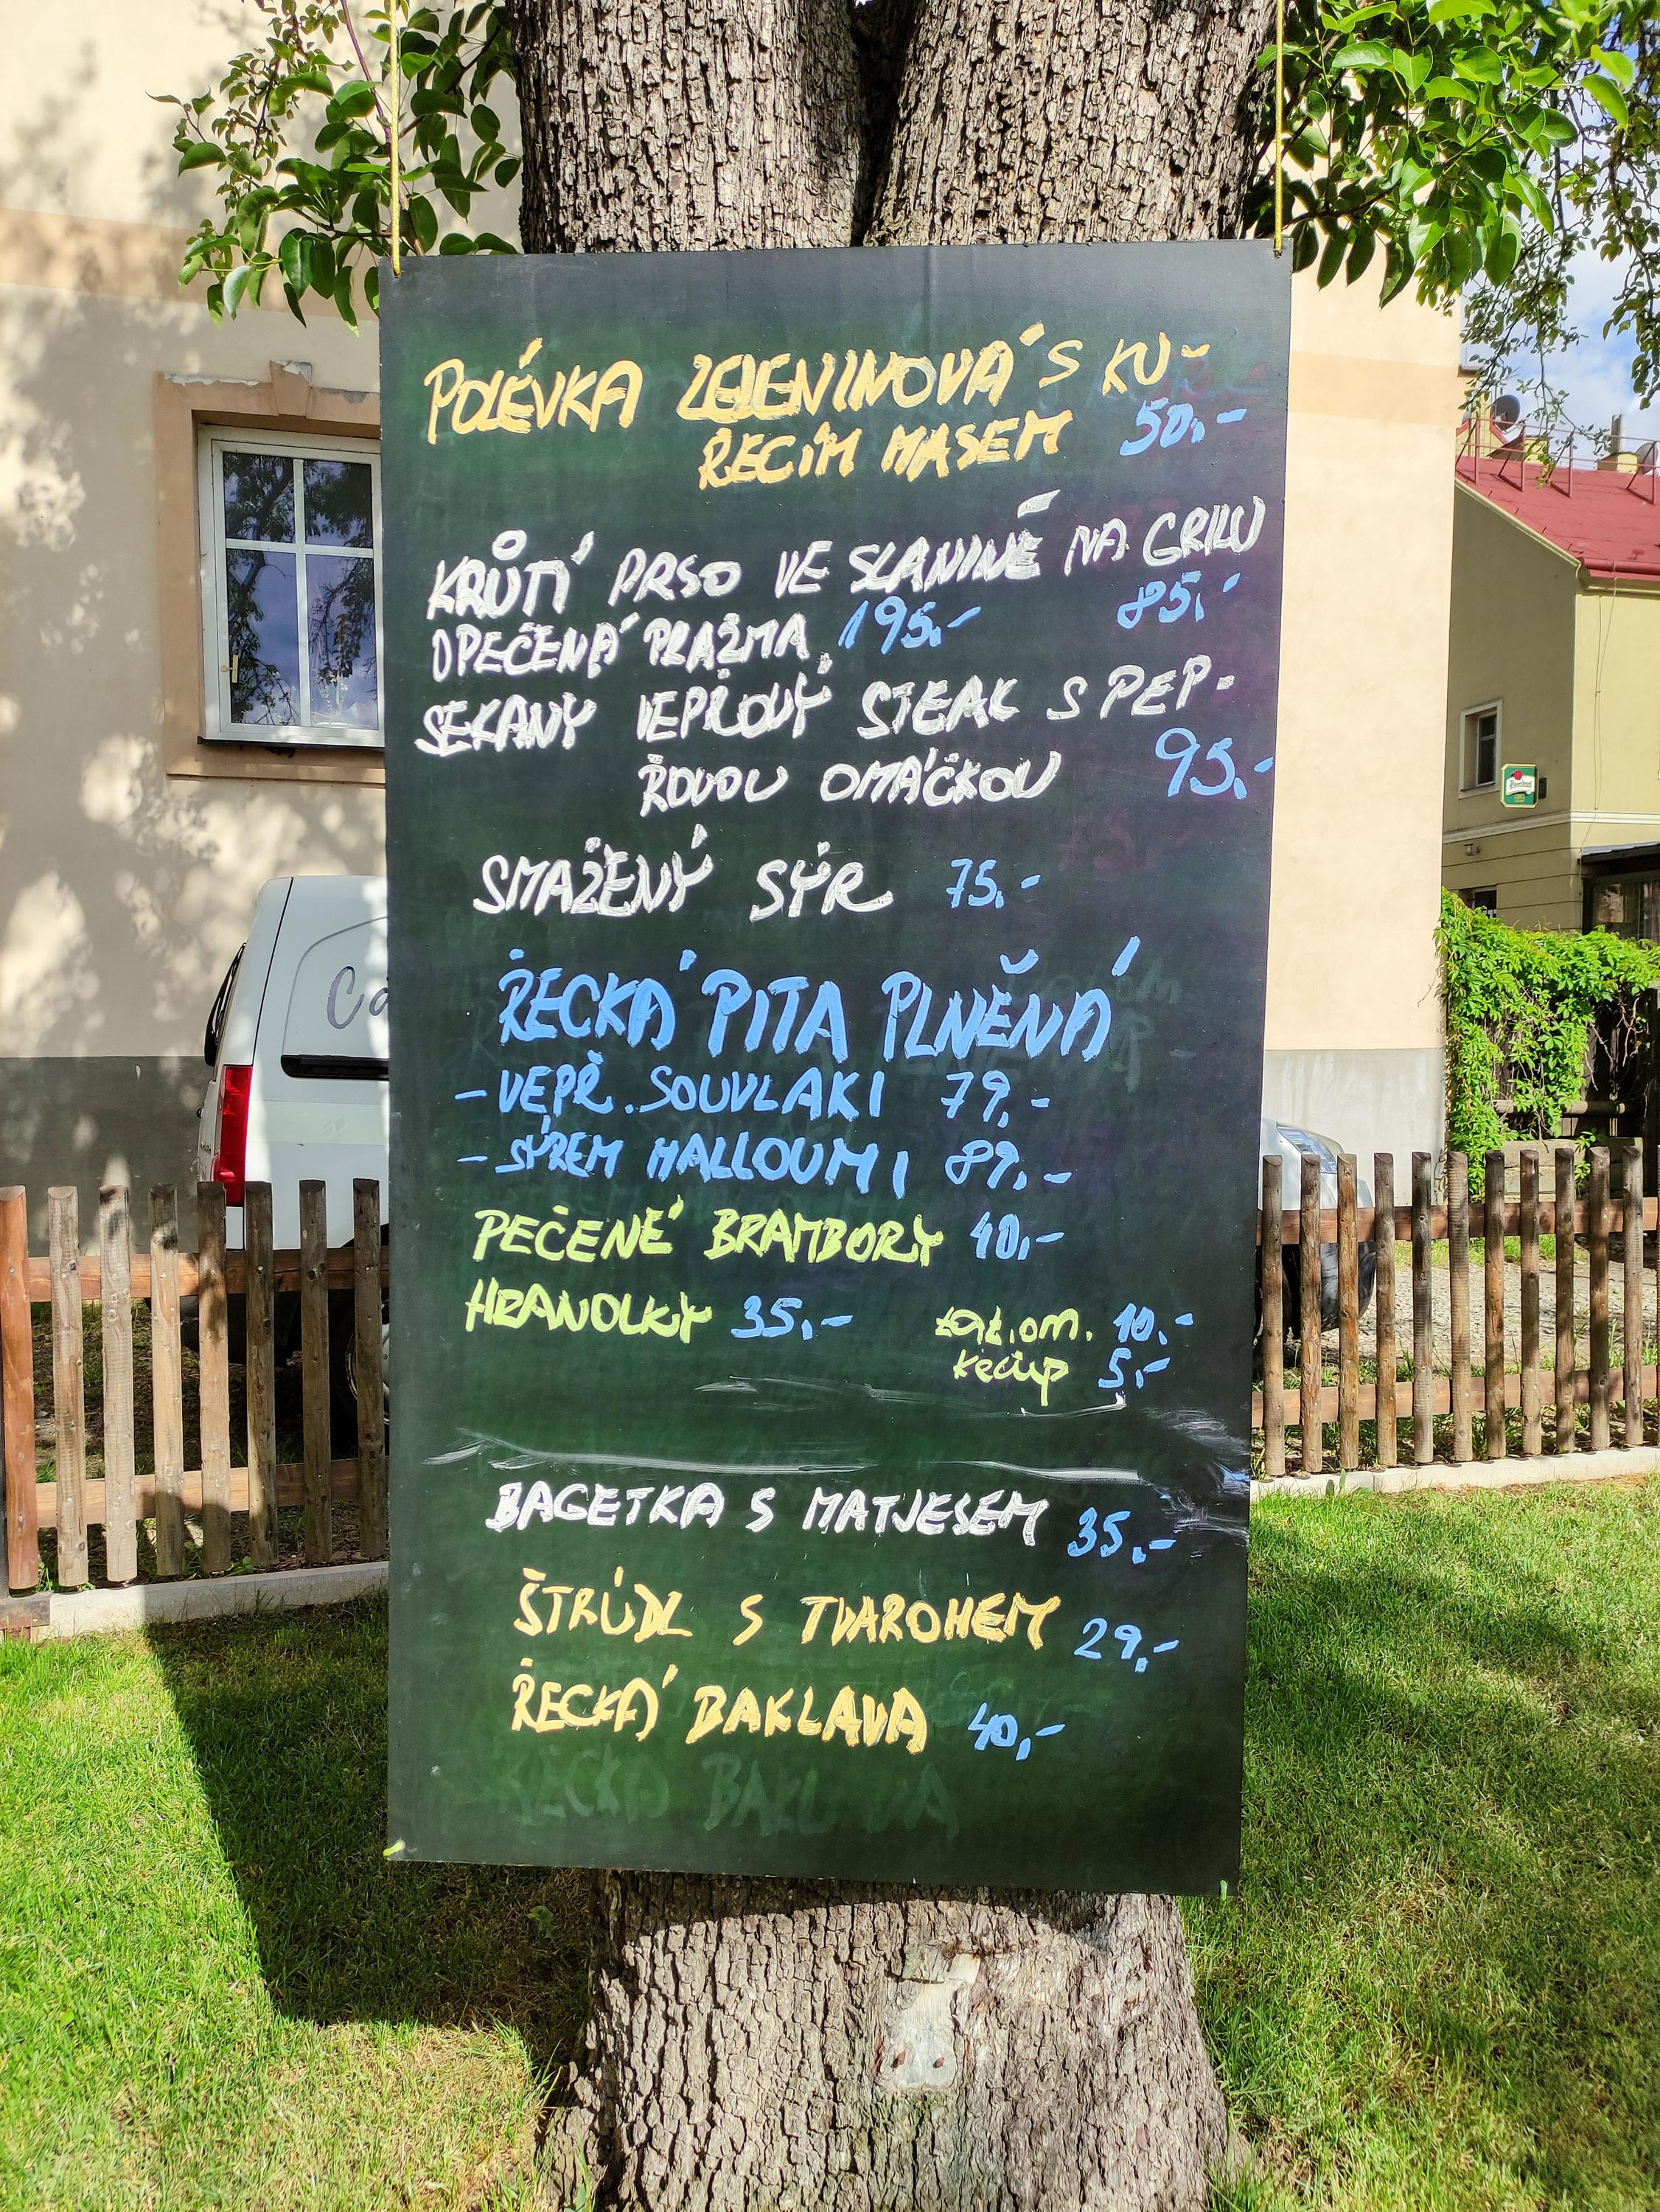 POLÉVKA ZELENINOVÁ S KU-
ŘECÍM MASEM 50,-
KRŮTÍ PRSO VE SLANINĚ NA GRILU
85,-
OPEČENÁ PRAŽMA 195,-
SEKANÝ VEPŘOVÝ STEAK S PEP-
ŘOVOU OMÁČKOU 95,-
SMAŽENÝ SÝR 75,-
ŘECKÁ PITA PLNĚNÁ
- VEPŘ. SOUVLAKI 79,-
- SÝREM HALLOUMI 89,-
PEČENÉ BRAMBORY 40,-
HRANOLKY 35,- tat. om. 10,-
kečup 5,-
BAGETKA S MATJESEM 35,-
ŠTRŮDL S TVAROHEM 29,-
ŘECKÁ BAKLAVA 40,-
ŘECKÁ BAKLAVA